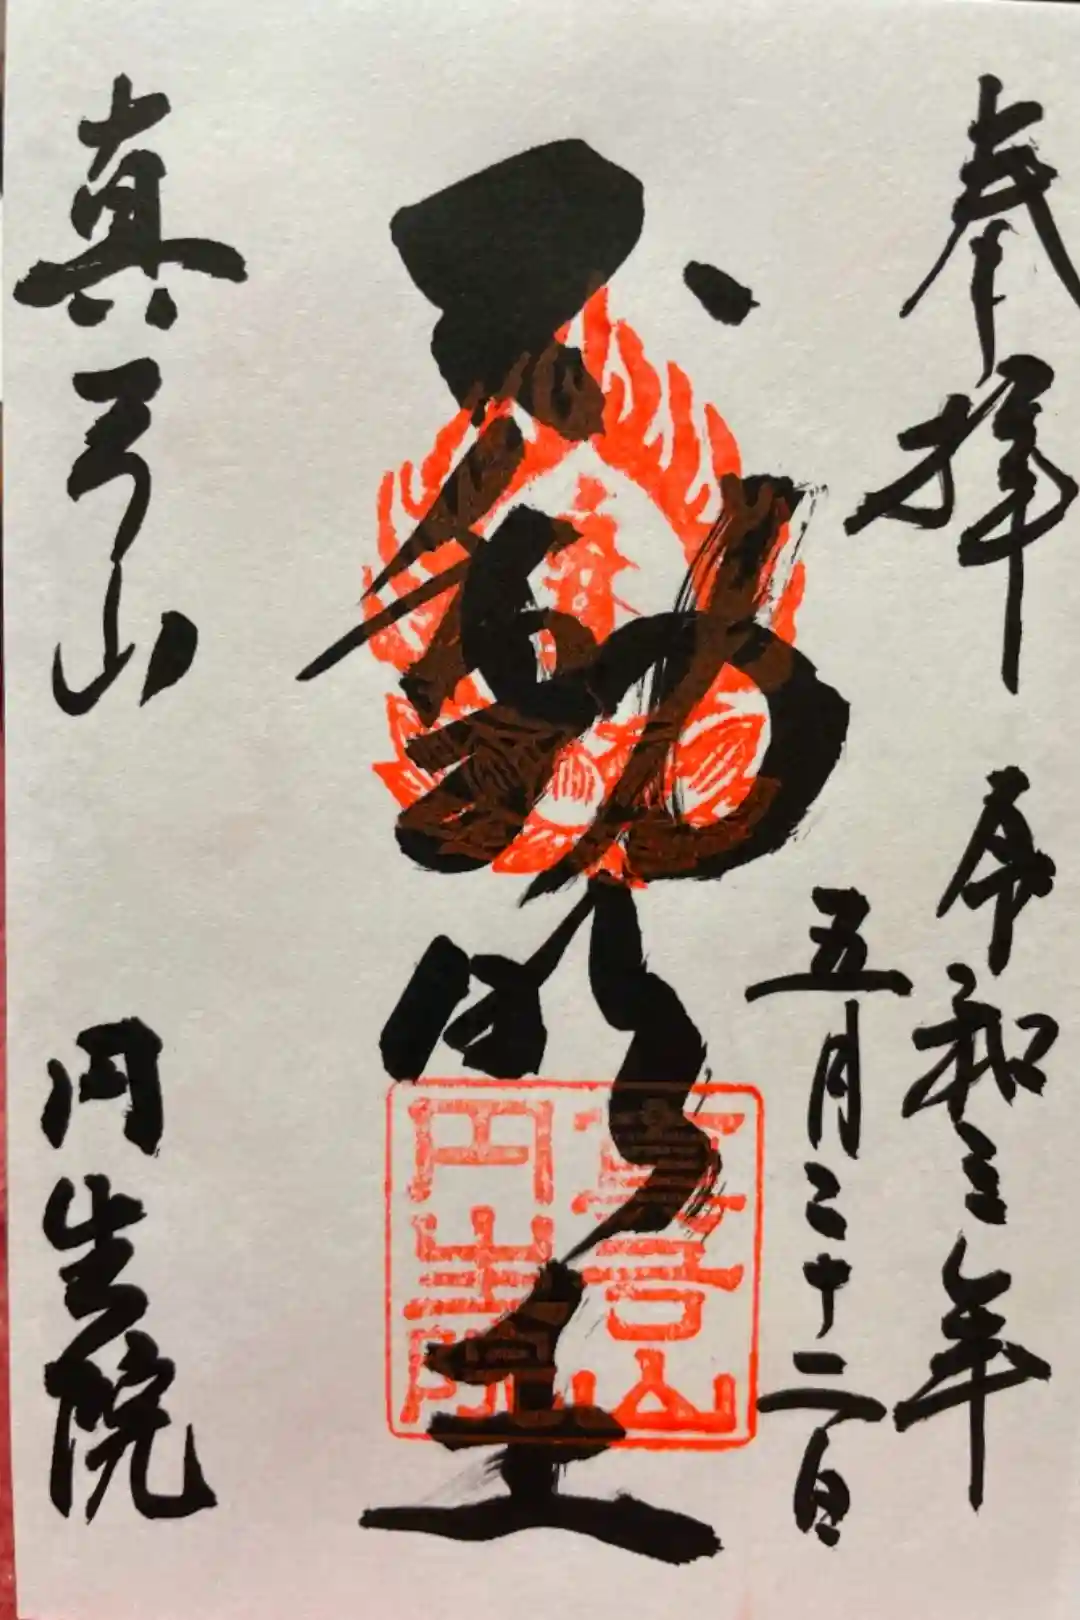 奉拝
令和三年
五月二十二日
不動明王
真弓山
円生院
円生院